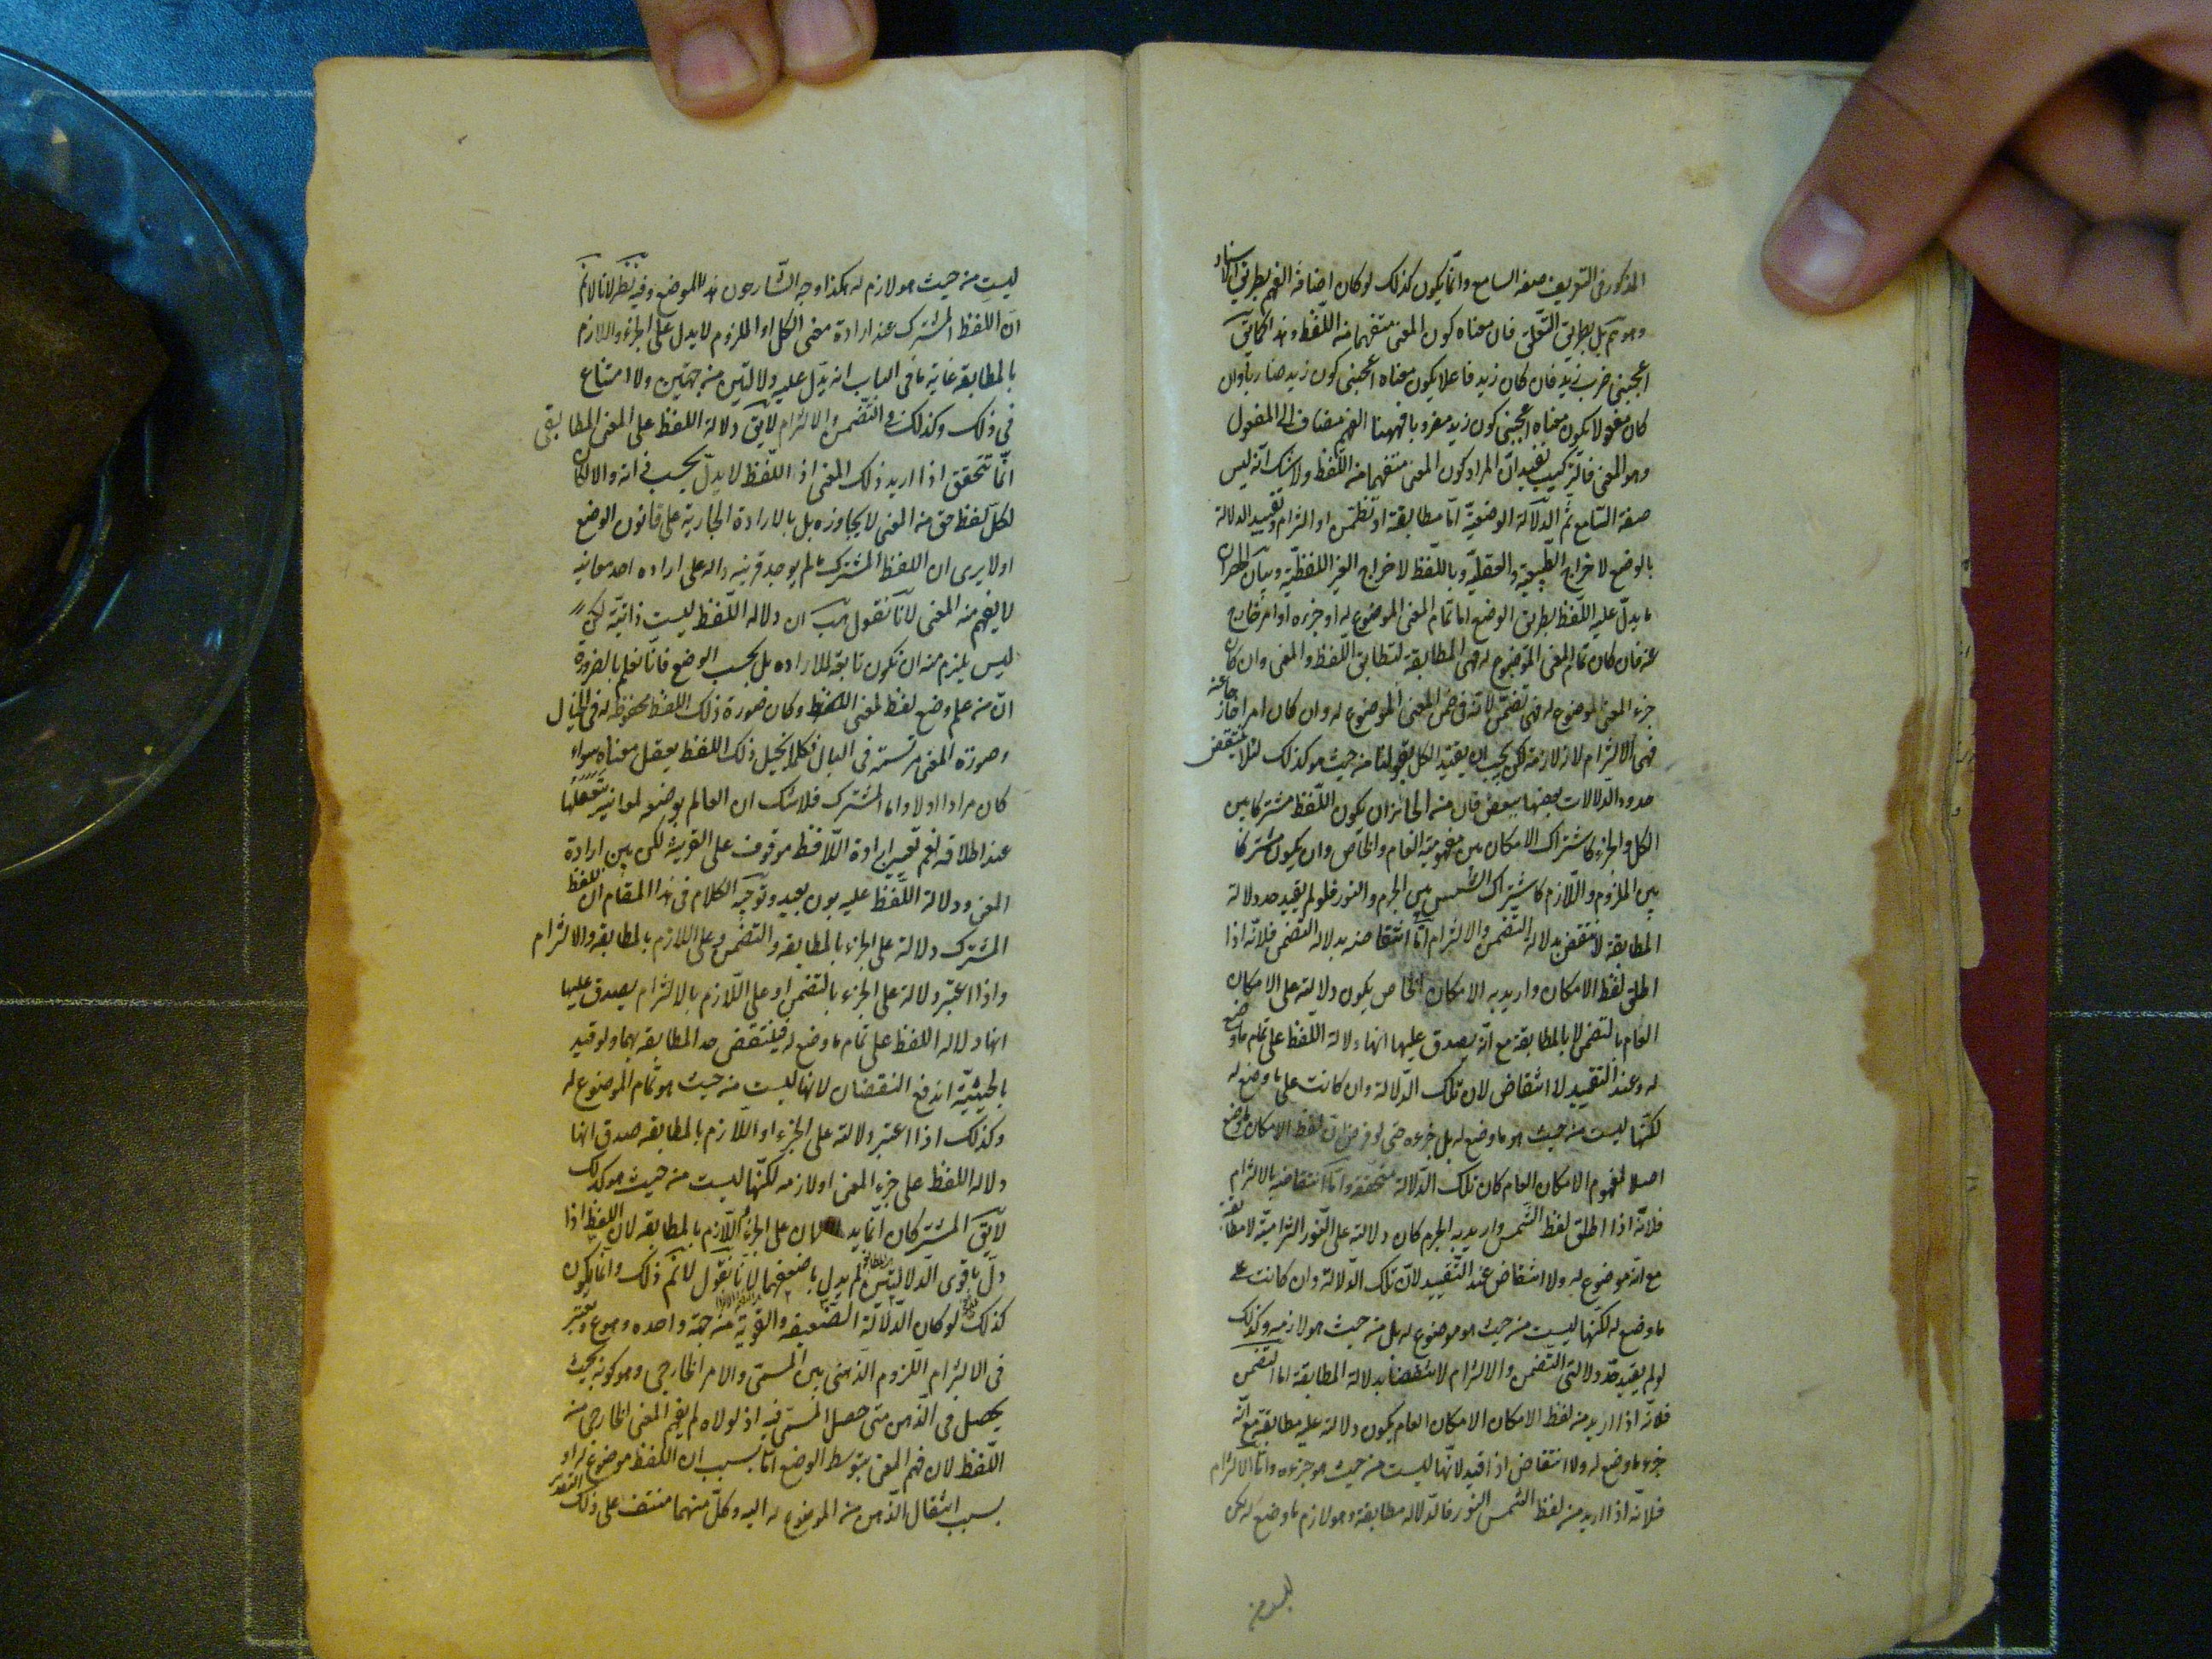 المذكور فى التعريف صفة السامع وانما يكون كذلك لو كان اضافة الفهم بطريق الاسناد
وهو مم بل بطريق التعلق فان معناه كون المعنى منفهما من اللفظ وهذا كما يق
اعجبنى ضرب زيد فان كان زيد فاعلا يكون معناه اعجبنى كون زيد ضاربا وان
كان مفعولا يكون معناه اعجبنى كون زيد مضروبا فههنا الفهم مضاف الى المفعول
وهو المعنى فالتركيب يفيد ان المراد كون المعنى منفهما من اللفظ ولا شك انه ليس
صفة السامع ثم الدلالة الوضعية اما مطابقة او تضمن او التزام وتقييد الدلالة
بالوضع لاخراج الطبيعية والعقلية وباللفظ لاخراج الغير اللفظية وبيان الحصر ان
ما يدل عليه اللفظ بطريق الوضع اما تمام المعنى الموضوع له او جزءه او امر خارج
عنه فان كان تمام المعنى الموضوع له فهى المطابقة لتطابق اللفظ والمعنى وان كان
جزء المعنى الموضوع له فهى تضمن لانه فى ضمن المعنى الموضوع له وان كان امرا خارجا عنه
فهى الالتزام لانه لازمه لكن يجب ان يقيد الكل بقولنا من حيث هو كذلك لئلا ينتقض
حدود الدلالات بعضها ببعض فان من الجائز ان يكون اللفظ مشتركا بين
الكل والجزء كاشتراك الامكان بين مفهوميه العام والخاص وان يكون مشتركا
بين الملزوم واللازم كاشتراك الشمس بين الجرم والنور فلو لم يقيد حد دلالة
المطابقة لانتقض بدلالة التضمن والالتزام اما انتقاضه بدلالة التضمن فلانه اذا
اطلق لفظ الامكان واريد به الامكان الخاص يكون دلالته على الامكان
العام بالتضمن لا بالمطابقة مع انه يصدق عليها انها دلالة اللفظ على تمام ما وضع
له وعند التقييد لا انتقاض لان تلك الدلالة وان كانت على ما وضع له
لكنها ليست من حيث هو ما وضع له بل جزءه حتى لو فرض ان لفظ الامكان ما وضع
اصلا لمفهوم الامكان العام كان تلك الدلالة متحققة واما انتقاضه بالالتزام
فلانه اذا اطلق لفظ الشمس واريد به الجرم كان دلالته على النور التزامية لا مطابقة
مع انه موضوع له ولا انتقاض عند التقييد لان تلك الدلالة وان كانت على
ما وضع له لكنها ليست من حيث هو موضوع له بل من حيث هو لازمه وكذلك
لو لم يقيد حد دلالتى التضمن والالتزام لانتقضا بدلالة المطابقة اما التضمن
فلانه اذا اريد من لفظ الامكان الامكان العام يكون دلالته عليه مطابقة مع انه
جزء ما وضع له ولا انتقاض اذا قيد لانها ليست من حيث هو جزءه واما الالتزام
فلانه اذا اريد من لفظ الشمس النور فالدلالة مطابقة وهو لازم ما وضع له لكن
ليست من
ليست من حيث هو لازم له هكذا وجه الشارحون هذا الموضع وفيه نظر لانا لا نم
ان اللفظ المشترك عند ارادة معنى الكل او الملزوم لا يدل على الجزء واللازم
بالمطابقة غاية ما فى الباب انه يدل عليه دلالتين من جهتين ولا امتناع
فى ذلك وكذلك فى التضمن والالتزام لا يق دلالة اللفظ على المعنى المطابقى
انما تتحقق اذا اريد ذلك المعنى اذ اللفظ لا يدل بحسب ذاته والا لكان
لكل لفظ حق من المعنى لا يجاوزه بل بالارادة الجارية على قانون الوضع
او لا يرى ان اللفظ المشترك ما لم يوجد قرينة دالة على ارادة احد معانيه
لا يفهم منه المعنى لانا نقول هب ان دلالة اللفظ ليست ذاتية لكن
ليس يلزم منه ان تكون تابعة للارادة بل بحسب الوضع فانا نعلم بالضرورة
ان من علم وضع لفظ لمعنى وكان صورة ذلك اللفظ محفوظة له فى الخيال
وصورة المعنى مرتسمة فى البال فكلما تخيل ذلك اللفظ يعقل معناه سواء
كان مرادا اولا واما المشترك فلا شك ان العالم بوضعه لمعانيه يتعقلها
عند اطلاقه نعم تعيين ارادة اللافظ موقوف على القرينة لكن بين ارادة
المعنى ودلالة اللفظ عليه بون بعيد وتوجيه الكلام فى هذا المقام ان اللفظ
المشترك دلالة على الجزء بالمطابقة والتضمن وعلى اللازم بالمطابقة والالتزام
واذا اعتبر دلالته على الجزء بالتضمن او على اللازم بالالتزام يصدق عليها
انها دلالة اللفظ على تمام ما وضع له فينتقض حد المطابقة بهما ولو قيد
بالحيثية اندفع النقضان لانها ليست من حيث هو تمام الموضوع له
وكذلك اذا اعتبر دلالته على الجزء او اللازم بالمطابقة صدق انها
دلالة اللفظ على جزء المعنى او لازمه لكنها ليست من حيث هو كذلك
لا يق المشترك انما يدلان على الجزء واللازم بالمطابقة لان اللفظ اذا
دل باقوى الدلالتين لم يدل باضعفهما لانا نقول لا نم ذلك وانما يكون
كذلك لو كان الدلالة الضعيفة والقوية من جهة واحدة وهو مم ويعتبر
فى الالتزام اللزوم الذهنى بين المسمى والامر الخارجى وهو كونه بحيث
يحصل فى الذهن متى حصل المسمى فيه اذ لولاه لم يفهم المعنى الخارجى من
اللفظ لان فهم المعنى بتوسط الوضع اما بسبب ان اللفظ موضوع له او
بسبب انتقال الذهن من الموضوع له اليه وكل منهما منتف على ذلك التقدير